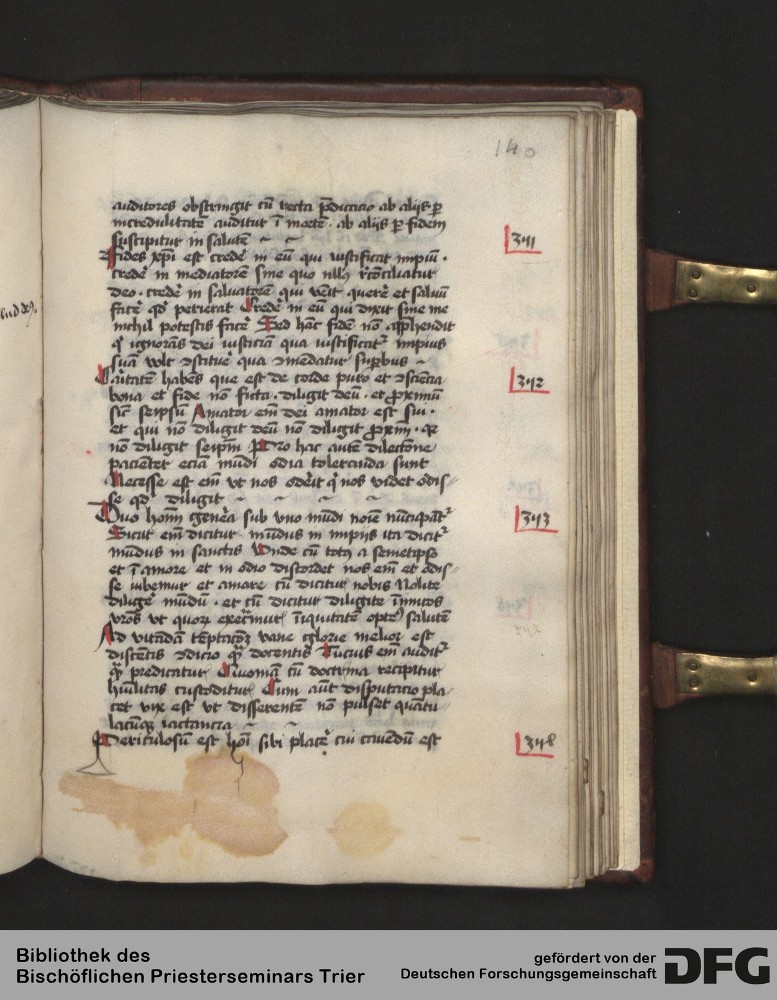 140
auditores obstringit cū recta p̄dicacio ab alijs ꝑ
incredulitatē auditur ī mortē · ab alijs ꝑ fidem
suscipitur in salutē
Fides xp̄i est credē in eū qui iustificat impiū ·
341
credē in mediatorē sine quo nllꝰ recōciliatur
deo · credē in saluatorē qui venit querē et saluū
facē qd̛ perierat Credē in eū qui dixit sine me
nichil potestis facē Sed hāc fidē nō app̄hendit
qͥ ignorās dei iusticiā qua iustificatᷣ impius
suā vult ꝯstituē qua ꝯmēdatur suꝑbus
Caritatē habēs que est de corde puro et ꝯsciēcia
342
bona et fide nō ficta · diligit deū · et ꝓximū
sicut seipsū Amator em̄ dei amator est sui ·
et qui nō diligit deū nō diligit ꝓximū · qꝛ
nō diligit seip̄m Pro hac autē dilectōne
pacienter eciā mūdi odia toleranda sunt
Necesse est em̄ vt nos oderit qͥ nos videt odis⸗
se qd̛ diligit
Duo hom̄ genera sub vno mūdi noīe nūcupātᷣ
343
Sicut em̄ dicitur mūdus in impiis ita dicitᷣ
mūdus in sanctis Vnde cū totꝰ a semetipso
et ī amore et in odio discordet nos em̄ et odis⸗
se iubemur et amare cū dicitur nobis Nolite
diligē mūdū · et cū dicitur diligite īmicos
vr̄os vt quoꝝ execramur īiquitatē optemꝰ salutē
Ad vitādam tēptacōeꝫ vane glorie melior est
discētis ꝯdicio qͣꝫ docentis Tucius em̄ auditᷣ
qͣꝫ predicatur Quoniā cū doctrina recipitur
hūilitas custoditur Cum aūt disputacio pla⸗
cet vix est vt disserentē nō pulset quātu⸗
lacūqꝫ iactancia
Periculosū est hōi sibi placē cui cauendū est
348
Bibliothek des
Bischöflichen Priesterseminars Trier
gefördert von der
Deutschen Forschungsgemeinschaft
DFG